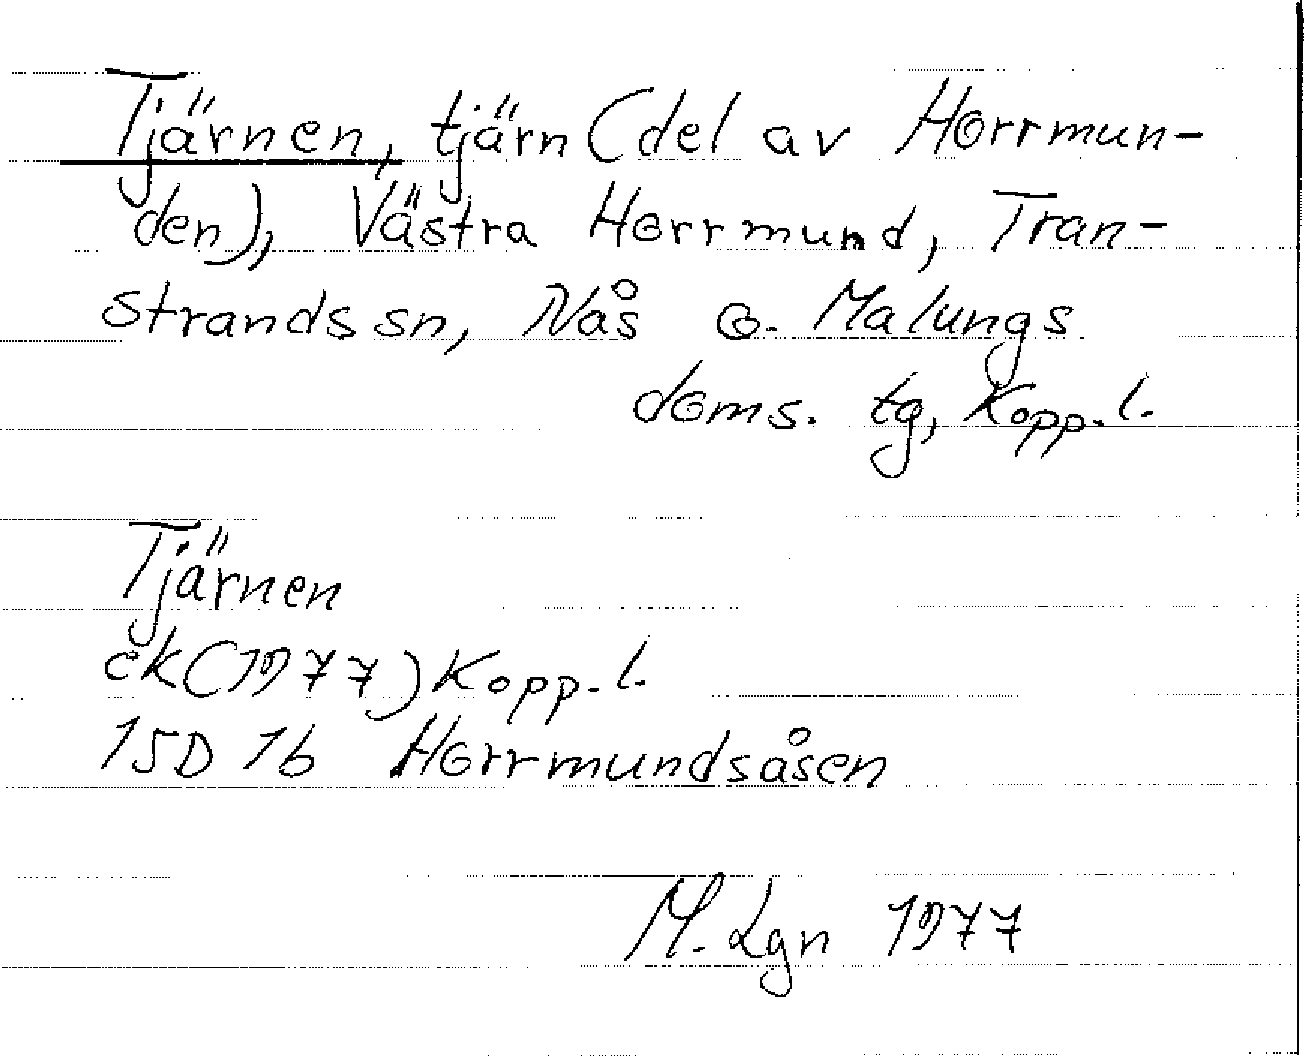 Tjärnen, tjärn (del av Horrmun-
den), Västra Horrmund, Tran-
strands sn, Nås o. Malungs
doms. tg, Kopp. l.
Tjärnen
ek (1977) Kopp. l.
15D 1b Horrmundsåsen
M. Lgn 1977